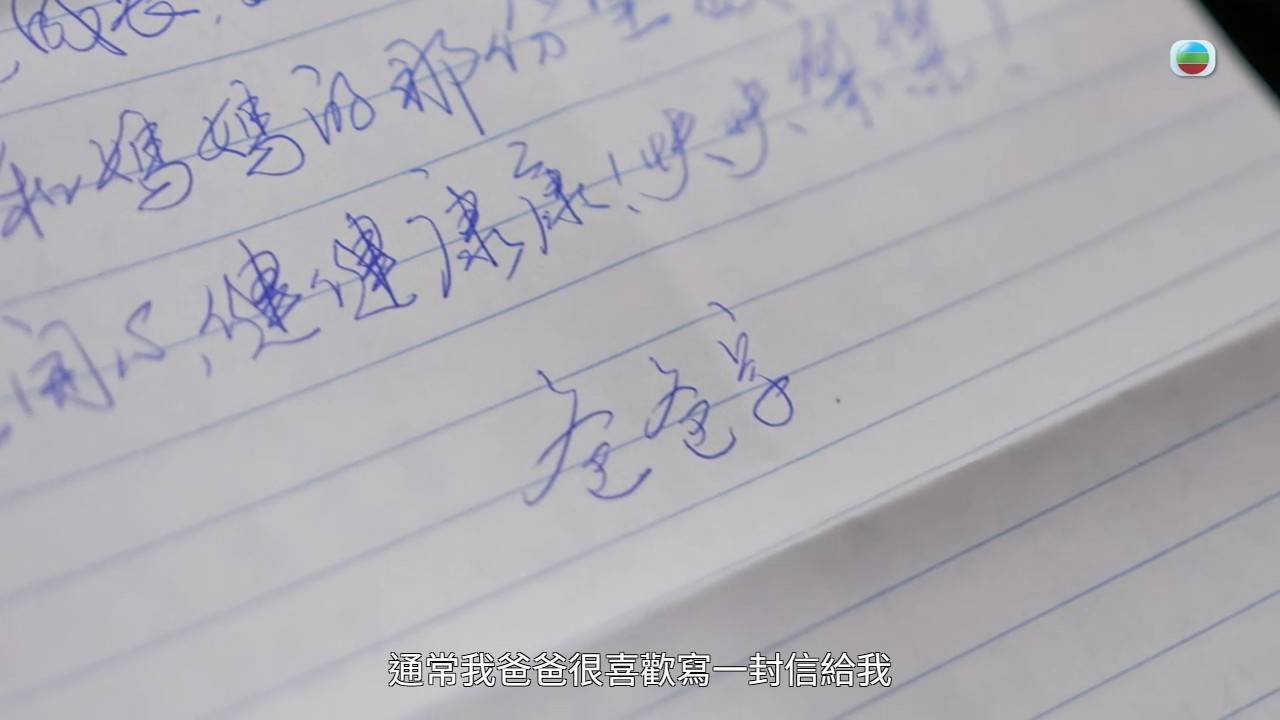 成長,
和媽媽的那份
開心,健健康康!步步
爸爸字
通常我爸爸很喜歡寫一封信給我